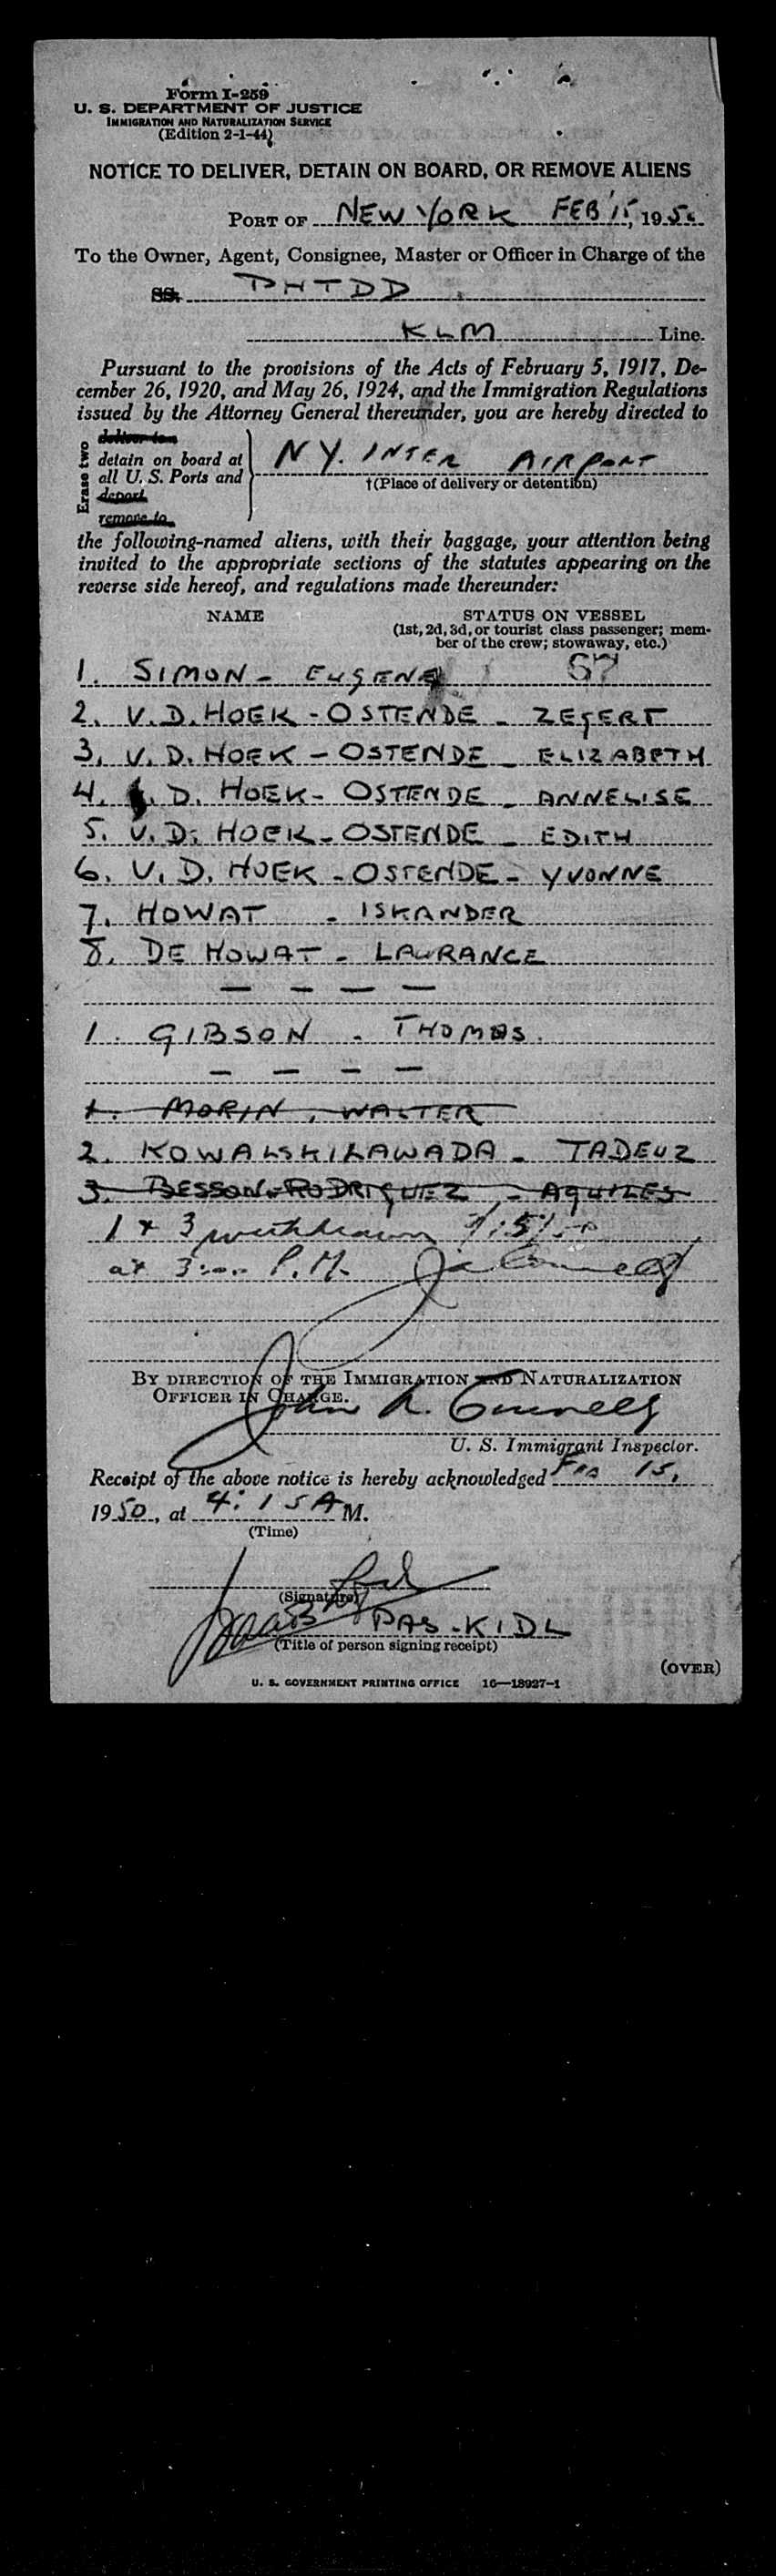 Form I-259
U. S. DEPARTMENT OF JUSTICE
IMMIGRATION AND NATURALIZATION SERVICE
(Edition 2-1-44)
NOTICE TO DELIVER, DETAIN ON BOARD, OR REMOVE ALIENS
PORT OF NEW YORK FEB 15, 1950
To the Owner, Agent, Consignee, Master or Officer in Charge of the
SS. PHTDD
KLM Line.
Pursuant to the provisions of the Acts of February 5, 1917, De-
cember 26, 1920, and May 26, 1924, and the Immigration Regulations
issued by the Attorney General thereunder, you are hereby directed to
Erase two
deliver to
detain on board at
all U. S. Ports and
deport
remove to
NY. INTER AIRPORT
†(Place of delivery or detention)
the following-named aliens, with their baggage, your attention being
invited to the appropriate sections of the statutes appearing on the
reverse side hereof, and regulations made thereunder:
NAME STATUS ON VESSEL
(1st, 2d, 3d, or tourist class passenger; mem-
ber of the crew; stowaway, etc.)
1. SIMON - EUGENE 67
2. V. D. HOEK - OSTENDE - ZEGERT
3. V. D. HOEK - OSTENDE - ELIZABETH
4. D. HOEK - OSTENDE - ANNELISE
5. V. D. HOEK - OSTENDE - EDITH
6. V. D. HOEK - OSTENDE - YVONNE
7. HOWAT - ISKANDER
8. DE HOWAT - LAURANCE
— — — —
1. GIBSON - THOMAS.
— — — —
1. MORIN, WALTER
2. KOWALSKILAWADA - TADEUZ
3. BESSON-RODRIGUEZ - AQUILES
1 & 3 withdrawn
at 3:00 P.M.
BY DIRECTION OF THE IMMIGRATION AND NATURALIZATION
OFFICER IN CHARGE.
John A. Connelly
U. S. Immigrant Inspector.
Receipt of the above notice is hereby acknowledged Feb 15,
1950, at 4:15 A M.
(Time)
(Signature)
PAS. KIDL
(Title of person signing receipt)
(OVER)
U. S. GOVERNMENT PRINTING OFFICE 16—18927-1